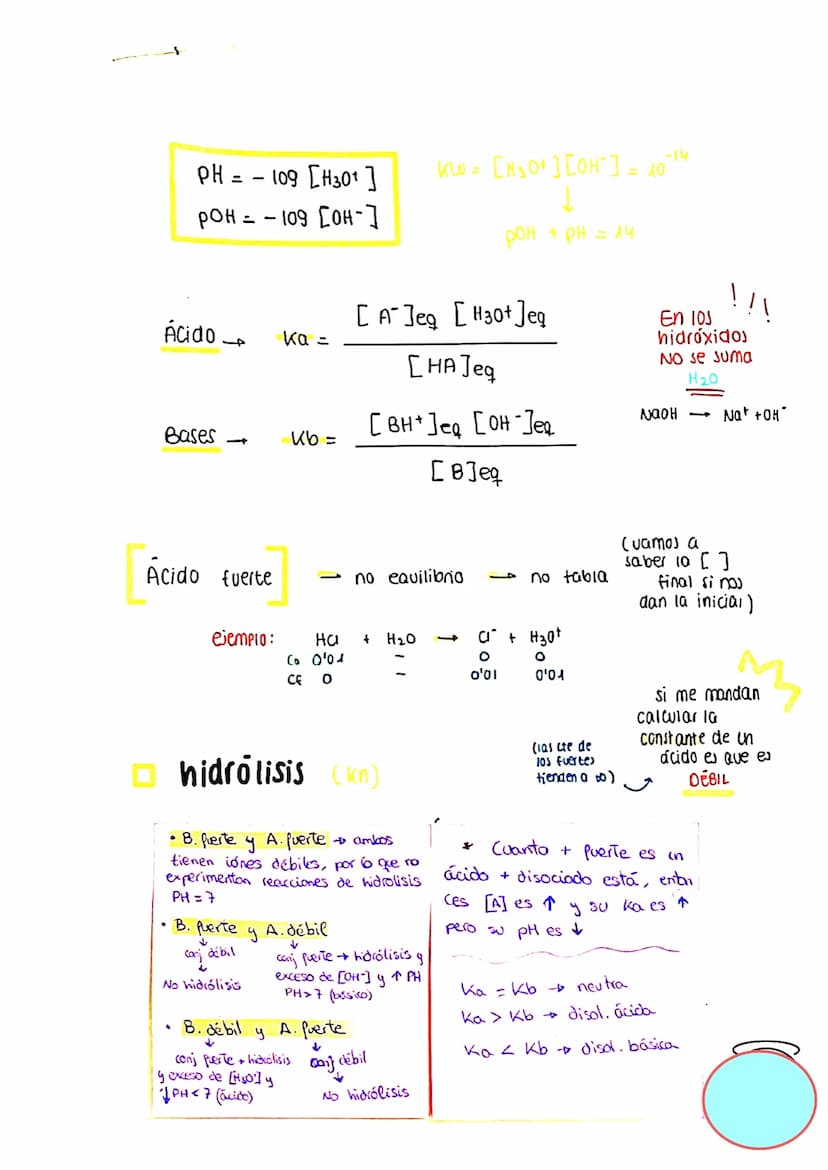 PH = - log [H3O+]
pOH = - log [OH-]
Kw = [H3O+][OH-] = 10^-14
↓
pOH + pH = 14
Ácido → Ka = [A-]eq [H3O+]eq
[HA]eq
! ! !
En los
hidróxidos
NO se suma
H2O
NaOH → Na+ + OH-
Bases → Kb = [BH+]eq [OH-]eq
[B]eq
[Ácido fuerte] → no equilibrio → no tabla
(vamos a
saber lo [ ]
final si nos
dan la inicial)
ejemplo: HCl + H2O → Cl- + H3O+
Co 0'01 - 0 0
CF 0 - 0'01 0'01
si me mandan
calcular la
constante de un
ácido es que es
DÉBIL
(las cte de
los fuertes
tienden a ∞)
hidrólisis (kh)
• B. fuerte y A. fuerte → ambos
tienen iónes débiles, por lo que no
experimentan reacciones de hidrolisis
PH = 7
• B. fuerte y A. débil
↓ ↓
conj débil
↓
No hidrólisis
conj fuerte → hidrólisis y
exceso de [OH-] y ↑ PH
PH > 7 (básico)
• B. débil y A. fuerte
↓ ↓
conj fuerte → hidrolisis
y exceso de [H3O+] y
↓ PH < 7 (ácido)
conj débil
↓
No hidrólisis
* Cuanto + fuerte es un
ácido + disociado está, enton
ces [A] es ↑ y su Ka es ↑
pero su pH es ↓
Ka = Kb → neutra
Ka > Kb → disol. ácida
Ka < Kb → disol. básica